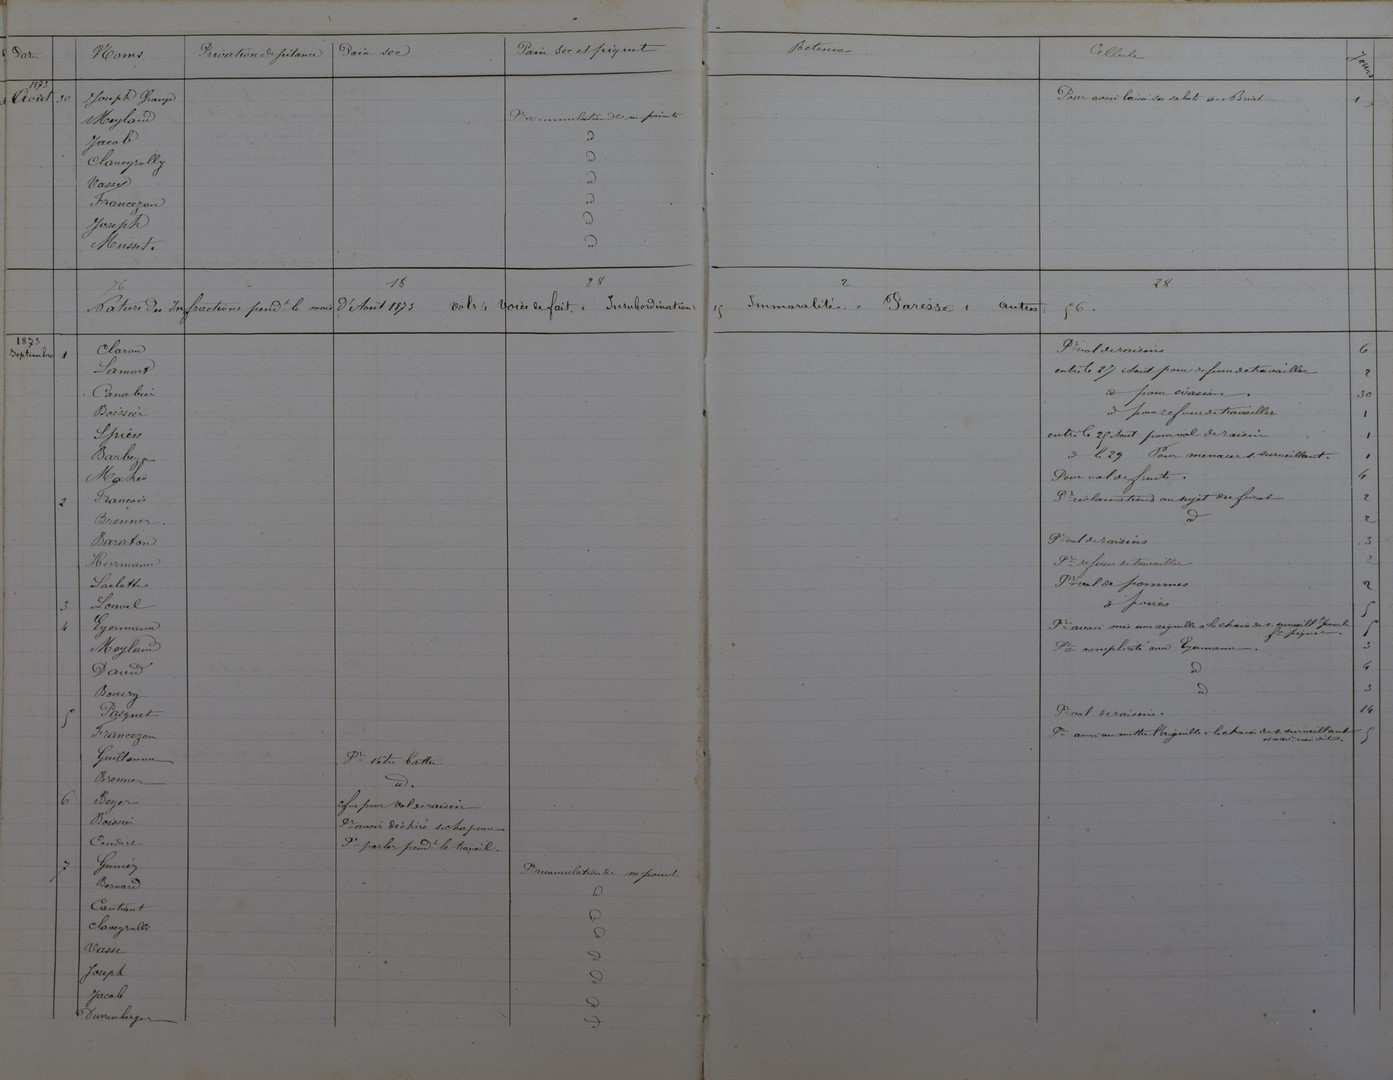 Noms Privation de pitance Pain sec Pain sec et piquet Retenue Cellule Jours
1873
Août 30 Joseph Pour avoir ses sabots au 1
Meyland Pr accumulation de m points
Jacob d
d
Vasse d
Francezon d
Joseph d
Musset. d
76 18 28 2 28
Nature des Infractions pendt le mois d'Août 1873 Vols 4 Voies de fait. " Insubordination 15 Immoralité. " Paresse 1 autres 56.
1873
Septembre 1 Claron Pr vol de raisins 6
Lamort entré le 27 Août pour refus de travailler 2
Canabier d pour évasion. 30
Boissier d pour refus de travailler 1
Spiess entré le 25 Août pour vol de raisin 1
d le 29 Pour menaces s. surveillant. 1
Mahé Pour vol de fruits. 4
2 François Pr réclamations au sujet du 2
Brenner. d 2
Baraton Pr vol de raisins 3
Herrmann Pr refus de travailler 2
Laclotte Pr vol de pommes 2
3 Louvel d poires 5
4 Eyermann Pr avoir mis une aiguille s. la chaise de s. surveillt pour le fre piquer. 5
Meyland Pr complicité avec Eyermann. 3
David d 4
Bouery d 3
5 Pasquet Pr vol de raisins. 14
Francezon Pr avoir vu mettre l'aiguille s. la chaise de s. surveillant et n'avoir rien dit. 5
Guillaume Pr s'être battu
Brenner d.
6 Beyer pour vol de raisin
Boissier Pr avoir déchiré s. chapeau
Pr parler pendt le travail.
7 Pr accumulation de m point
Bernard d
d
d
Vasse d
Joseph d
Jacob d
Durrenberger d